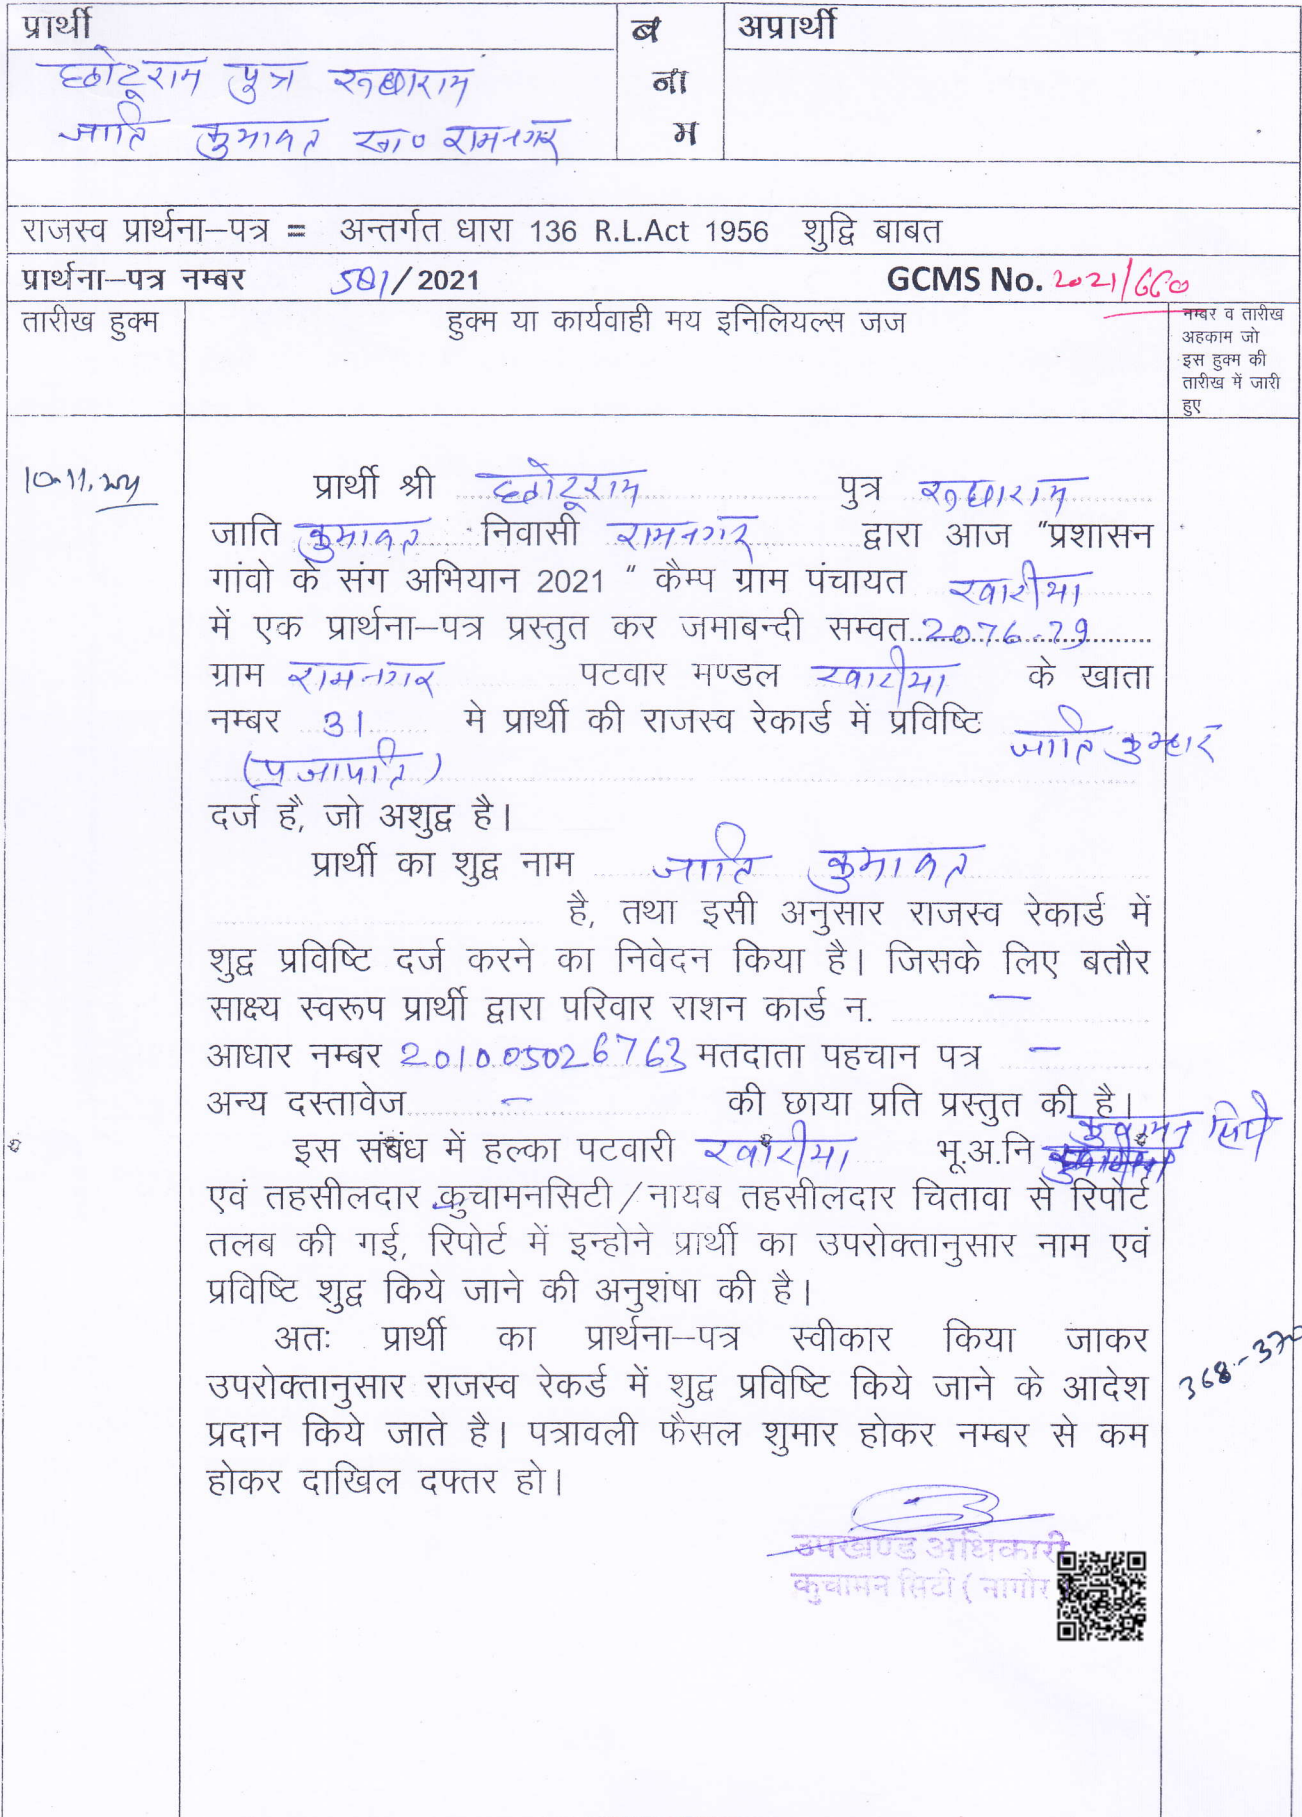 प्रार्थी
ब
ना
म
अप्रार्थी
छोटूराम पुत्र रूघाराम
जाति कुमावत सा० रामनगर
राजस्व प्रार्थना–पत्र = अन्तर्गत धारा 136 R.L.Act 1956 शुद्वि बाबत
प्रार्थना–पत्र नम्बर 581/2021 GCMS No. 2021/660
तारीख हुक्म
हुक्म या कार्यवाही मय इनिलियल्स जज
नम्बर व तारीख
अहकाम जो
इस हुक्म की
तारीख में जारी
हुए
10.11.2021
प्रार्थी श्री छोटूराम पुत्र रूघाराम
जाति कुमावत निवासी रामनगर द्वारा आज "प्रशासन
गांवो के संग अभियान 2021 " कैम्प ग्राम पंचायत खारीया
में एक प्रार्थना–पत्र प्रस्तुत कर जमाबन्दी सम्वत 2076-79
ग्राम रामनगर पटवार मण्डल खारीया के खाता
नम्बर 31 मे प्रार्थी की राजस्व रेकार्ड में प्रविष्टि जाति कुम्हार
(प्रजापति)
दर्ज है, जो अशुद्व है।
प्रार्थी का शुद्व नाम जाति कुमावत
है, तथा इसी अनुसार राजस्व रेकार्ड में
शुद्व प्रविष्टि दर्ज करने का निवेदन किया है। जिसके लिए बतौर
साक्ष्य स्वरूप प्रार्थी द्वारा परिवार राशन कार्ड न. –
आधार नम्बर 201005026763 मतदाता पहचान पत्र –
अन्य दस्तावेज – की छाया प्रति प्रस्तुत की है।
इस संबंध में हल्का पटवारी खारीया भू.अ.नि कुचामन सिटी
एवं तहसीलदार कुचामनसिटी/नायब तहसीलदार चितावा से रिपोर्ट
तलब की गई, रिपोर्ट में इन्होने प्रार्थी का उपरोक्तानुसार नाम एवं
प्रविष्टि शुद्व किये जाने की अनुशंषा की है।
अतः प्रार्थी का प्रार्थना–पत्र स्वीकार किया जाकर
उपरोक्तानुसार राजस्व रेकर्ड में शुद्व प्रविष्टि किये जाने के आदेश
प्रदान किये जाते है। पत्रावली फैसल शुमार होकर नम्बर से कम
होकर दाखिल दफ्तर हो।
368-370
उपखण्ड अधिकारी
कुचामन सिटी ( नागौर